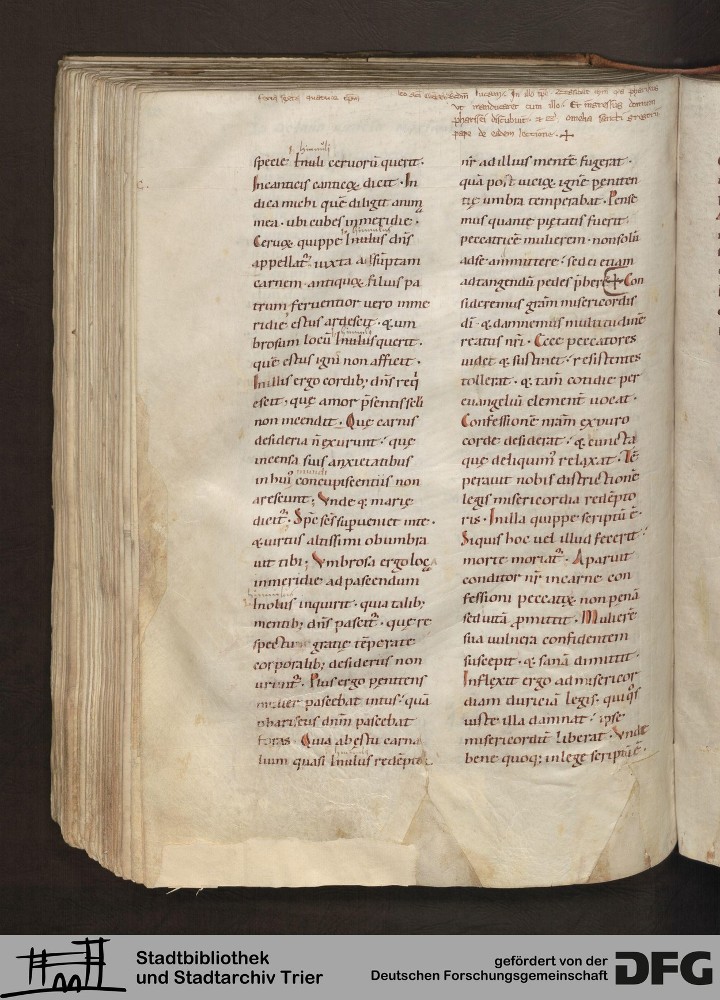 leo sci eugelii scdm lucam. In illo tpr. Rogabat ihm qda phariseus
ut manducaret cum illo. Et ingressus domum
pharisei discubuit. & rl. omelia sancti gregorii
pape de eadem lectione. +
specie hnuli ceruorũ querit.
In canticis canticoꝝ dicit. In
dica michi quẽ diligit anim̃
mea. ubi cubes in meridie.
Ceruoꝝ quippe hnulus dñs
appellat᷑. iuxta assũptam
carnem. antiquoꝝ filius pa
trum. feruentior uero in me
ridie estus ardescit. & um
brosum locũ hnulus querit.
quẽ estus igni non afficit.
In illis ergo cordib; dñs req̇
escit. que amor p̃sentis seli
non incendit. Que carnis
desideria ñ exurunt. que
incensa suis anxietatibus
in hui᷒ concupiscentiis non
arescunt. Vnde & marie
dicit᷑. Sp̃c scs sup̃ueniet in te.
& uirtus altissimi obumbra
uit tibi; Vmbrosa ergo loca
in meridie ad pascendum
hnulus inquirit. quia talib;
mentib; dñs pascit᷑. que re
spectu gratie tẽperate.
corporalib; desideriis non
urunt᷑. Plus ergo penitens
mulier pascebat intus. quã
phariseus dñm pascebat
foras. Quia ab estu carna
lium quasi hnulus redẽptor
nr̃ ad illius mentẽ fugerat.
quã post uicioꝝ ignẽ peniten
tie umbra temperabat. Pense
mus quante pietatis fuerit.
peccatricẽ mulierem. non solũ
ad se ammittere. sed ei etiam
ad tangendũ pedes p̃bere. + Con
sideremus gram̃ misericordis
di. & damnemus multitudinẽ
reatus nr̃i. Ecce peccatores
uidet & sustinet. resistentes
tollerat. & tam̃ cotidie per
euangeliũ clement᷑ uocat.
Confessionẽ nr̃am ex puro
corde desiderat. & cuncta
que deliquim᷒ relaxat. Tẽ
perauit nobis districtionẽ
legis misericordia redẽpto
ris. In illa quippe scriptũ ẽ.
Siquis hoc uel illud fecerit.
morte moriat᷑. Aparuit
conditor nr̃ in carne. con
fessioni peccatoꝝ non penã
sed uitã p̃mittit. Mulierẽ
sua uulnera confidentem
suscepit. & sanã dimittit.
Inflexit ergo ad misericor
diam duriciã legis. quia q̊s
iuste illa damnat. ipse
misericordit᷑ liberat. Vnde
bene quoq; in lege scriptũ ẽ.
Stadtbibliothek
und Stadtarchiv Trier
gefördert von der
Deutschen Forschungsgemeinschaft
DFG